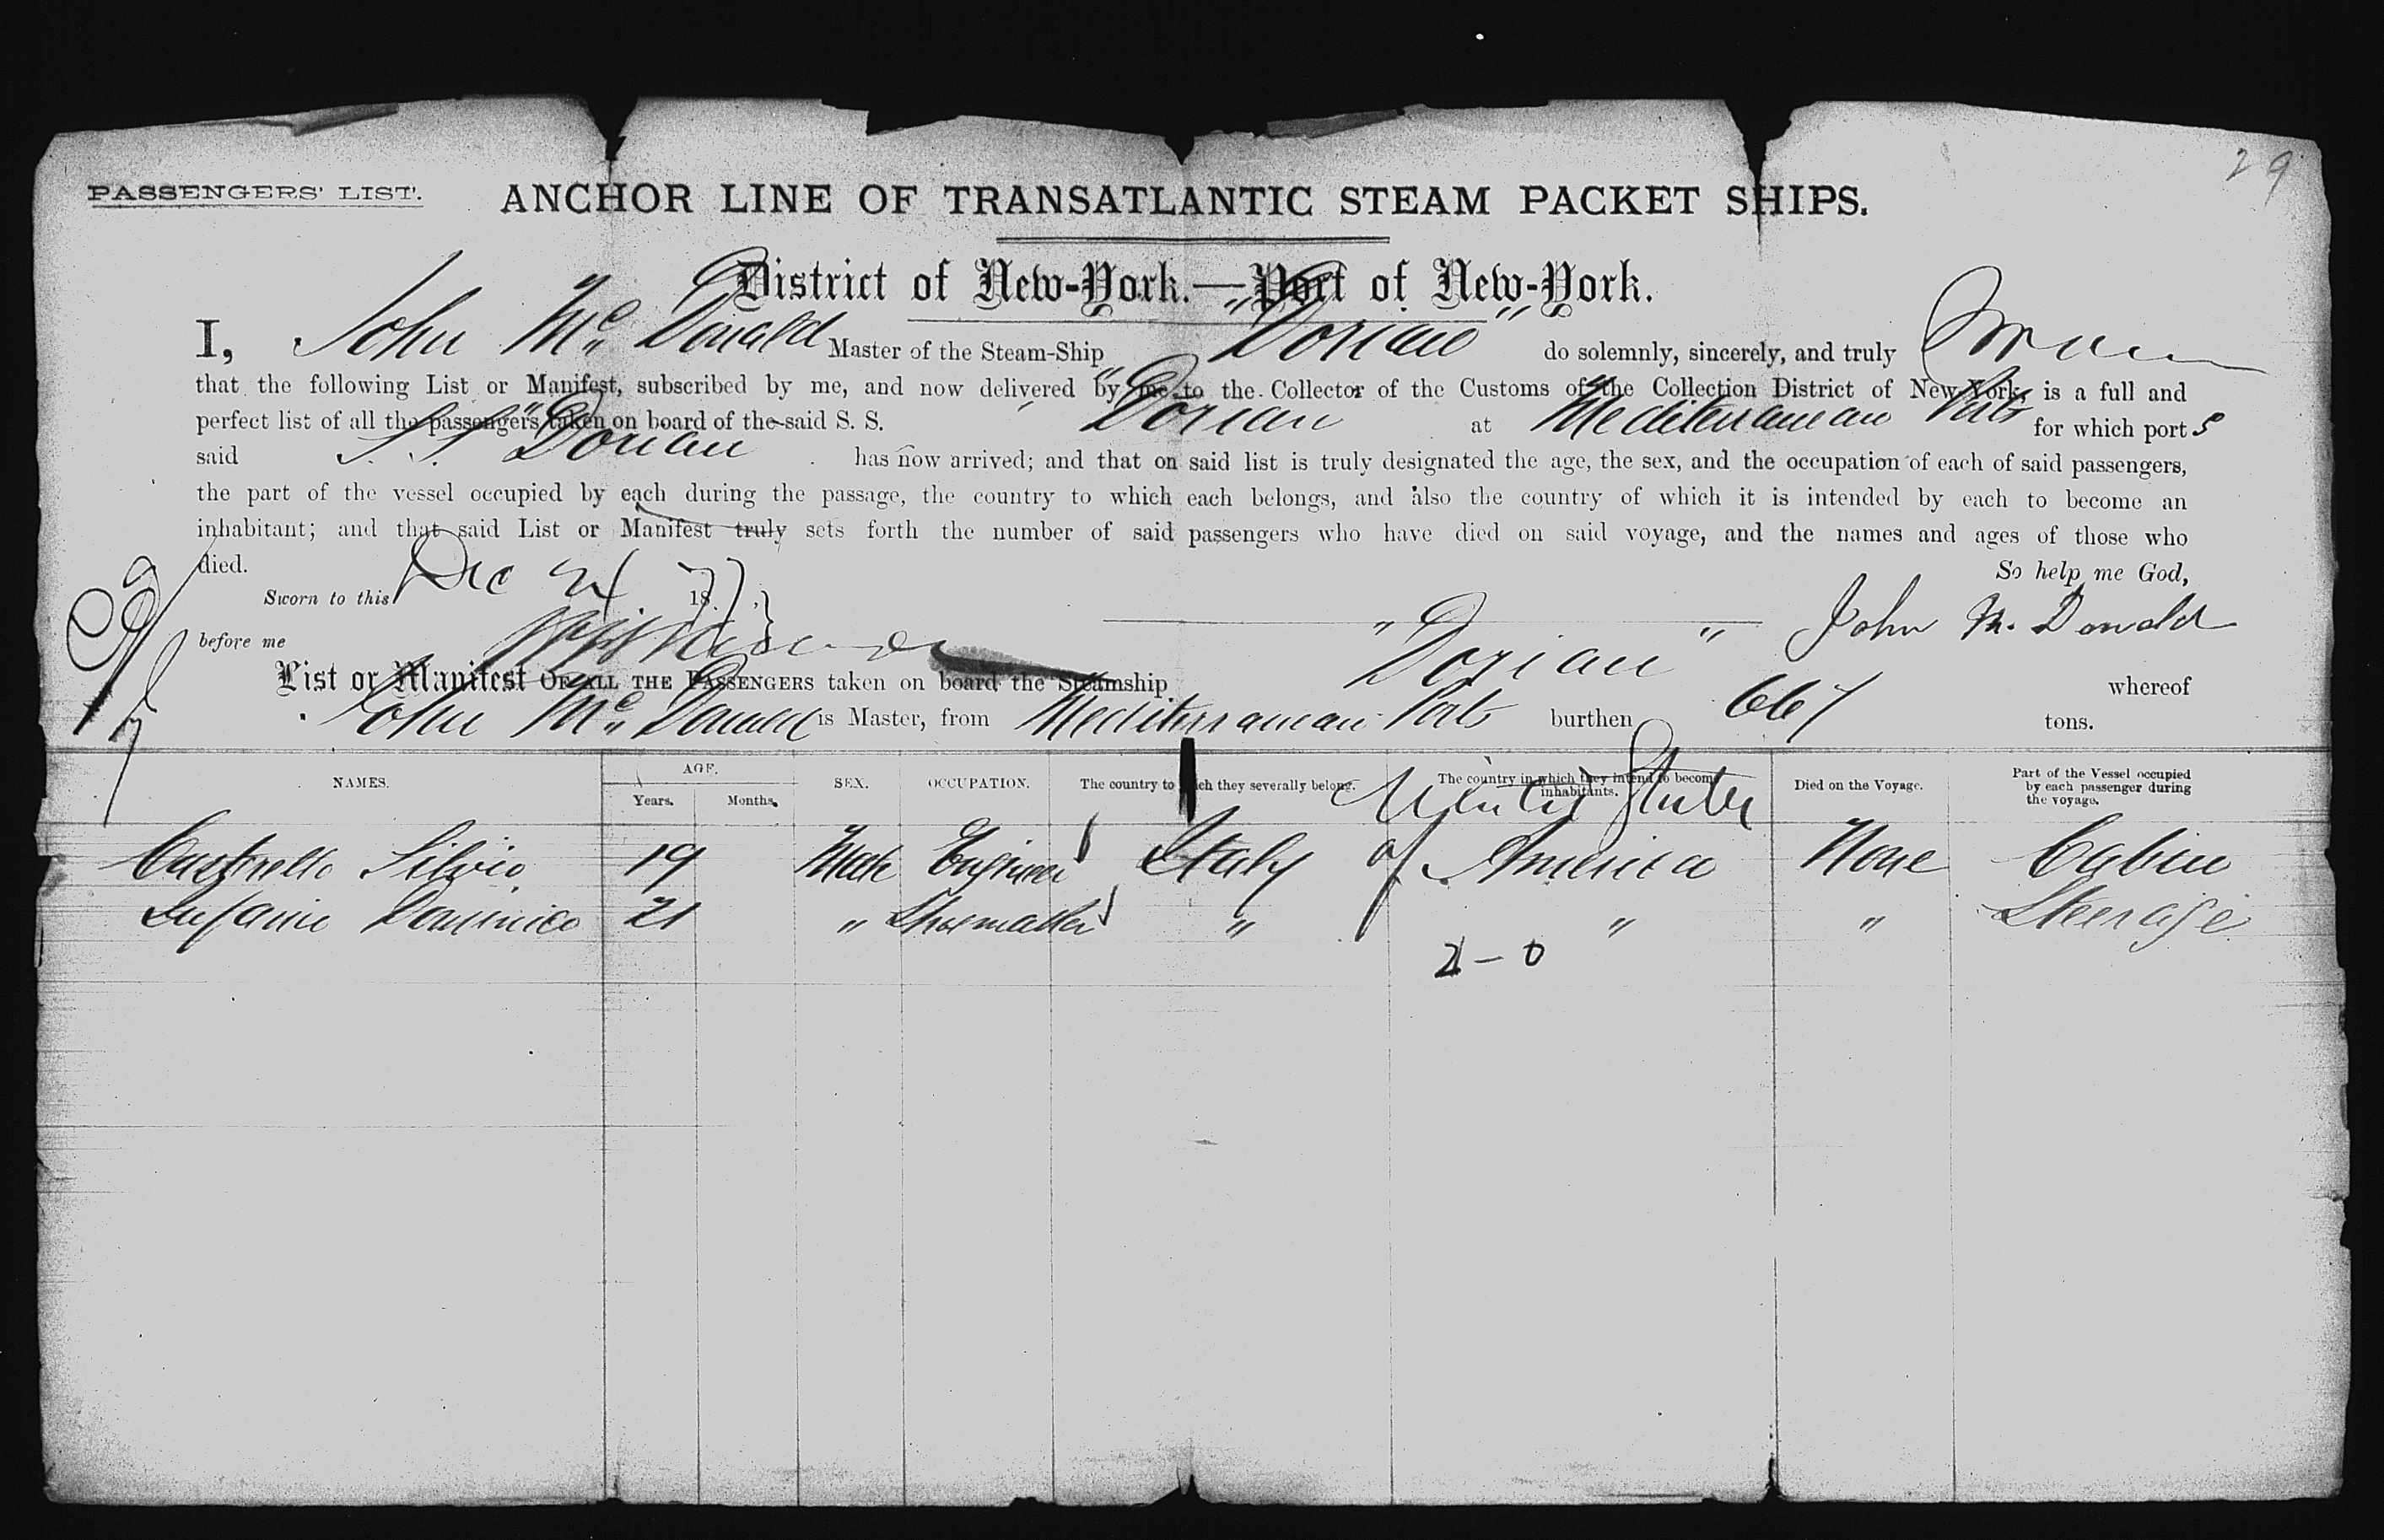 29
PASSENGERS' LIST. ANCHOR LINE OF TRANSATLANTIC STEAM PACKET SHIPS.
District of New-York.—Port of New-York.
I, John McDonald Master of the Steam-Ship "Dorian" do solemnly, sincerely, and truly Swear
that the following List or Manifest, subscribed by me, and now delivered by me to the Collector of the Customs of the Collection District of New York, is a full and
perfect list of all the passengers taken on board of the said S. S. "Dorian at Mediterranean Ports for which port s
said S.S. "Dorian has now arrived; and that on said list is truly designated the age, the sex, and the occupation of each of said passengers,
the part of the vessel occupied by each during the passage, the country to which each belongs, and also the country of which it is intended by each to become an
inhabitant; and that said List or Manifest truly sets forth the number of said passengers who have died on said voyage, and the names and ages of those who
died. So help me God,
Sworn to this Dec 24 1877 John McDonald
before me
List or Manifest OF ALL THE PASSENGERS taken on board the Steamship "Dorian" whereof
John McDonald is Master, from Mediterranean Ports burthen 667 tons.
NAMES. AGE. Years. Months. SEX. OCCUPATION. The country to which they severally belong. The country in which they intend to become inhabitants. Died on the Voyage. Part of the Vessel occupied by each passenger during the voyage.
United States
Silvio 19 Male Engineer Italy of America None Cabin
Dominico 21 " Shoemaker " " " Steerage
2 – 0